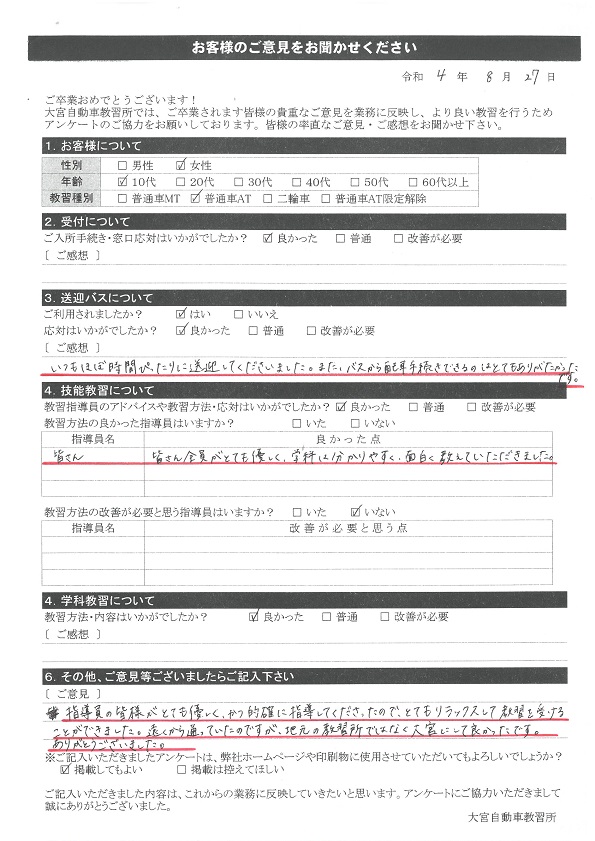 お客様のご意見をお聞かせください
令和 4 年 8 月 27 日
ご卒業おめでとうございます！
大宮自動車教習所では、ご卒業されます皆様の貴重なご意見を業務に反映し、より良い教習を行うため
アンケートのご協力をお願いしております。皆様の率直なご意見・ご感想をお聞かせ下さい。
1. お客様について
性別 □ 男性 ☑ 女性
年齢 ☑ 10代 □ 20代 □ 30代 □ 40代 □ 50代 □ 60代以上
教習種別 □ 普通車MT ☑ 普通車AT □ 二輪車 □ 普通車AT限定解除
2. 受付について
ご入所手続き・窓口応対はいかがでしたか？ ☑ 良かった □ 普通 □ 改善が必要
［ ご感想 ］
3. 送迎バスについて
ご利用されましたか？ ☑ はい □ いいえ
応対はいかがでしたか？ ☑ 良かった □ 普通 □ 改善が必要
［ ご感想 ］
いつもほぼ時間ぴったりに送迎してくださいました。また、バスから配車手続きできるのはとてもありがたかった
です。
4. 技能教習について
教習指導員のアドバイスや教習方法・応対はいかがでしたか？ ☑ 良かった □ 普通 □ 改善が必要
教習方法の良かった指導員はいますか？ □ いた □ いない
指導員名 良かった点
皆さん 皆さん全員がとても優しく、学科は分かりやすく、面白く教えていただきました。
教習方法の改善が必要と思う指導員はいますか？ □ いた ☑ いない
指導員名 改善が必要と思う点
4. 学科教習について
教習方法・内容はいかがでしたか？ ☑ 良かった □ 普通 □ 改善が必要
［ ご感想 ］
6. その他、ご意見等ございましたらご記入下さい
［ ご意見 ］
指導員の皆様がとても優しく、かつ的確に指導してくださったので、とてもリラックスして教習を受ける
ことができました。遠くから通っていたのですが、地元の教習所ではなく大宮にして良かったです。
ありがとうございました。
※ご記入いただきましたアンケートは、弊社ホームページや印刷物に使用させていただいてもよろしいでしょうか？
☑ 掲載してもよい □ 掲載は控えてほしい
ご記入いただきました内容は、これからの業務に反映していきたいと思います。アンケートにご協力いただきまして
誠にありがとうございました。
大宮自動車教習所